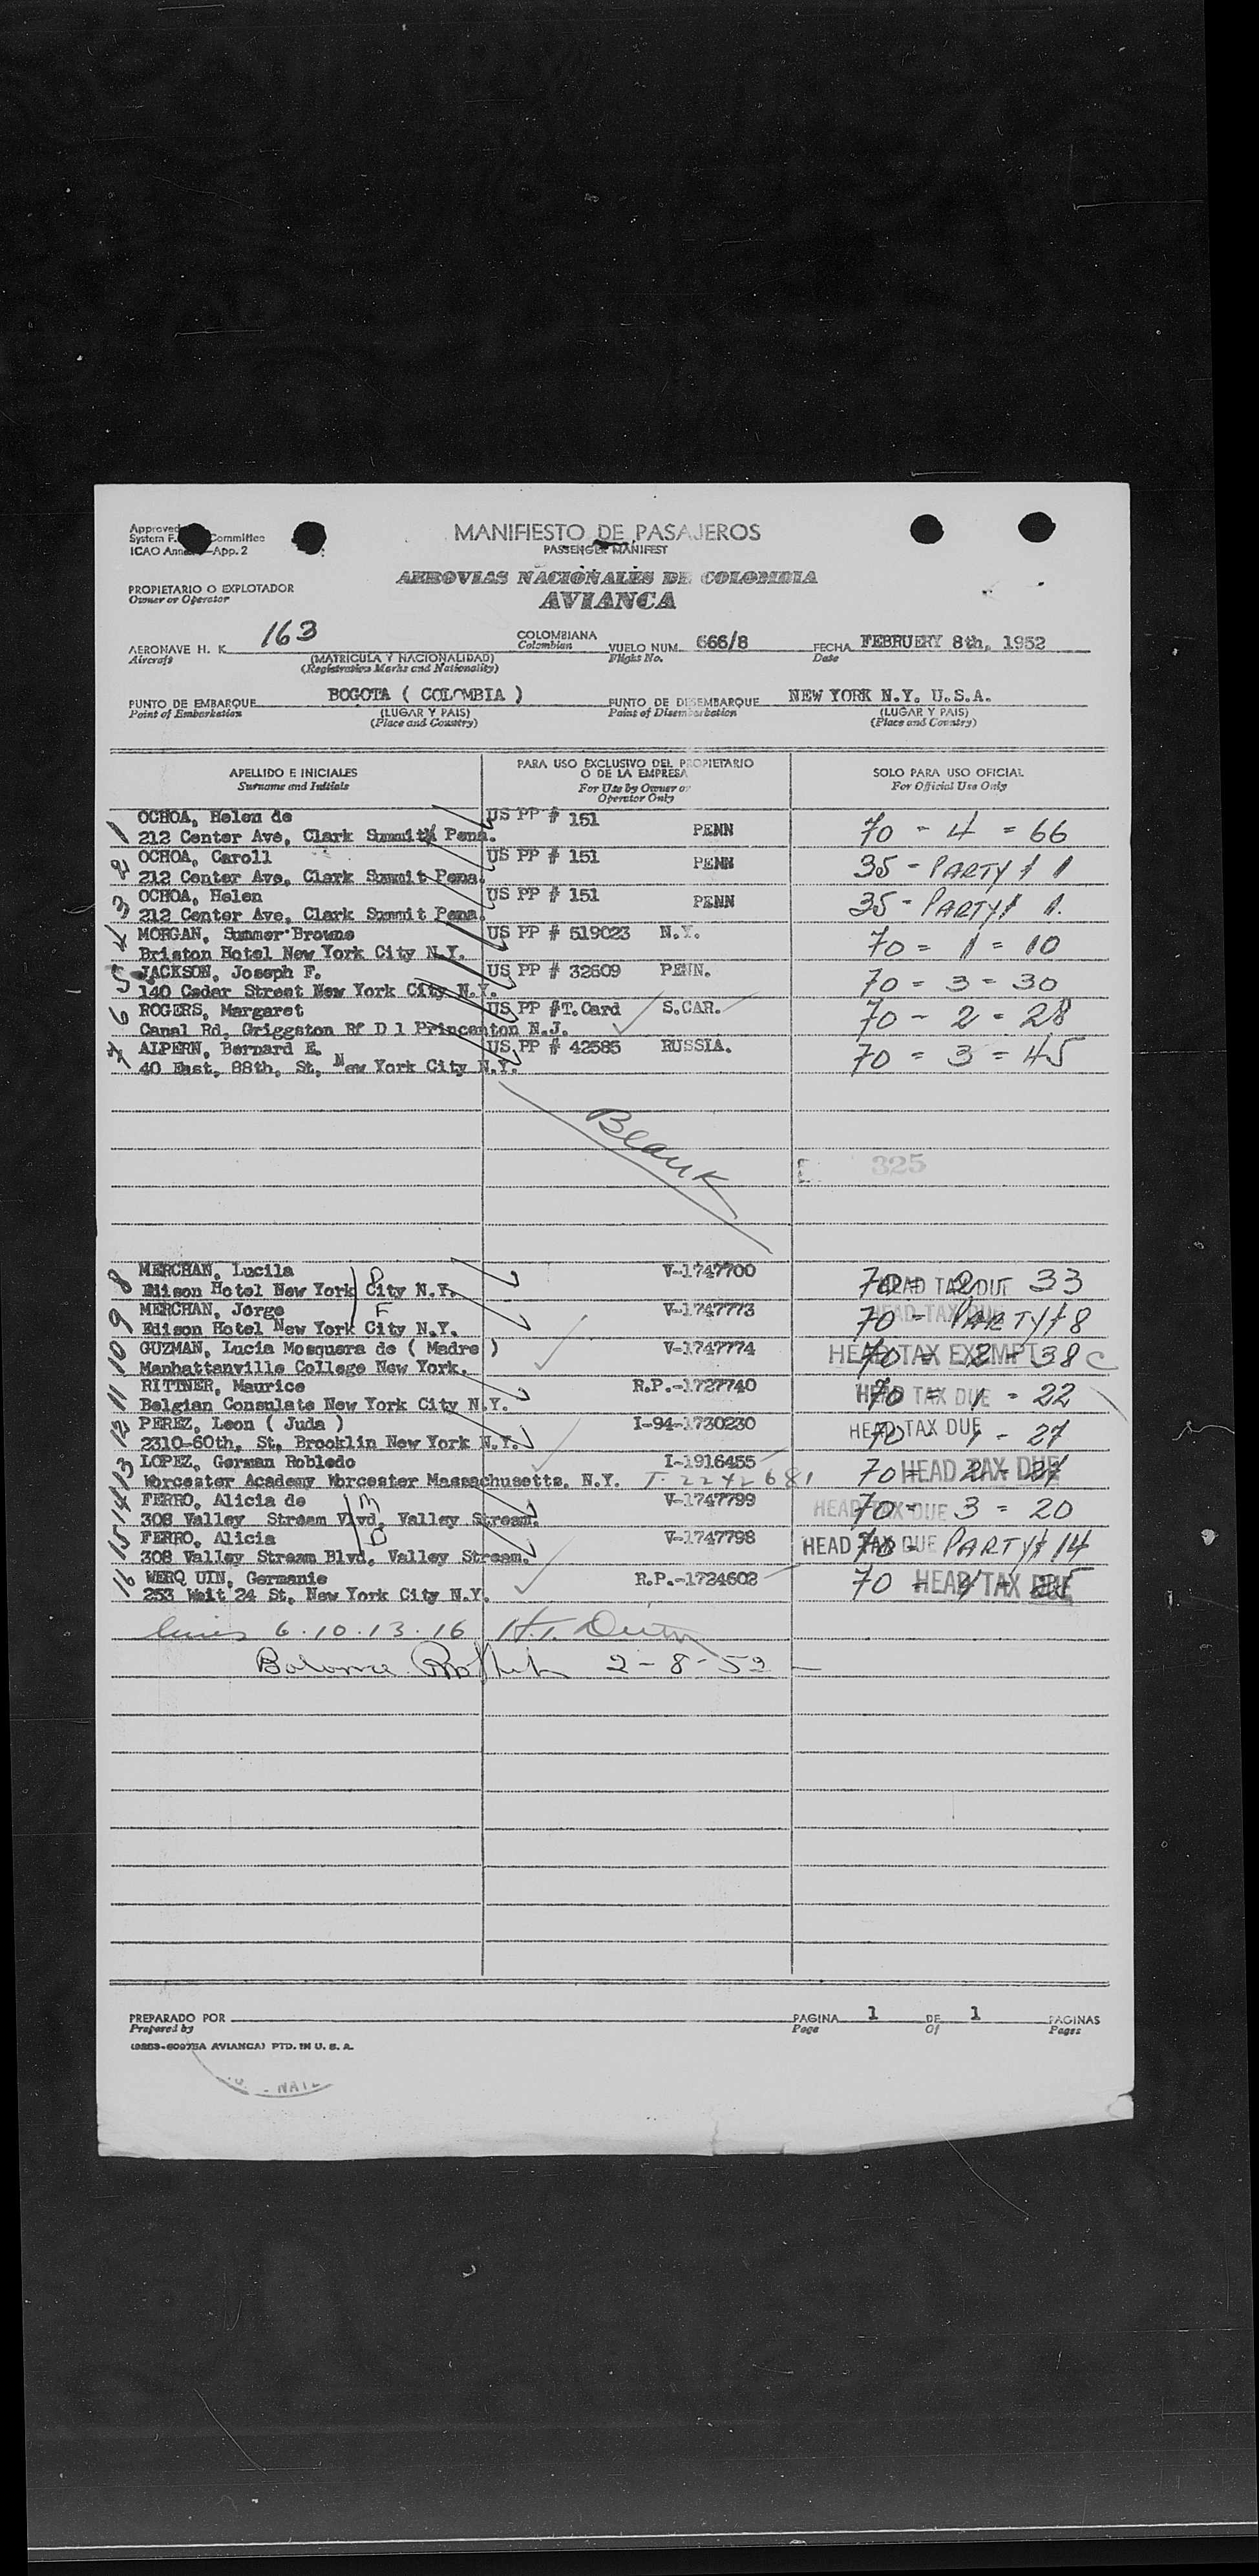 Approved Committee
System F.
ICAO Annex—App. 2
MANIFIESTO DE PASAJEROS
PASSENGER MANIFEST
AEROVIAS NACIONALES DE COLOMBIA
AVIANCA
PROPIETARIO O EXPLOTADOR
Owner or Operator
AERONAVE H. K. 163 COLOMBIANA VUELO NUM. 666/8 FECHA FEBRUERY 8th, 1952
Aircraft (MATRICULA Y NACIONALIDAD) Colombian Flight No. Date
(Registration Marks and Nationality)
PUNTO DE EMBARQUE BOGOTA ( COLOMBIA ) PUNTO DE DISEMBARQUE NEW YORK N.Y. U.S.A.
Point of Embarkation (LUGAR Y PAIS) Point of Disembarkation (LUGAR Y PAIS)
(Place and Country) (Place and Country)
APELLIDO E INICIALES PARA USO EXCLUSIVO DEL PROPIETARIO SOLO PARA USO OFICIAL
Surname and Initials O DE LA EMPRESA For Official Use Only
For Use by Owner or
Operator Only
1 OCHOA, Helen de US PP # 151 PENN 70 - 4 = 66
212 Center Ave, Clark Summit Pena.
2 OCHOA, Caroll US PP # 151 PENN 35 - PARTY # 1
212 Center Ave, Clark Summit Pena.
3 OCHOA, Helen US PP # 151 PENN 35 - PARTY # 1.
212 Center Ave, Clark Summit Pena.
4 MORGAN, Summer Browne US PP # 519023 N.Y. 70 = 1 = 10
Briston Hotel New York City N.Y.
5 JACKSON, Joseph F. US PP # 32609 PENN. 70 = 3 = 30
140 Cedar Street New York City N.Y.
6 ROGERS, Margaret US PP #T.Card S.CAR. 70 - 2 = 28
Canal Rd, Griggston Rf D 1 Princenton N.J.
7 ALPERN, Bernard E. US PP # 42585 RUSSIA. 70 = 3 = 45
40 East, 88th, St, New York City N.Y.
Blank
325
8 MERCHAN, Lucila V-1747700 70 - 2 33 HEAD TAX DUE
Edison Hotel New York City N.Y.
9 MERCHAN, Jorge F V-1747773 70 = PARTY # 8 HEAD TAX DUE
Edison Hotel New York City N.Y.
10 GUZMAN, Lucia Mosquera de ( Madre ) V-1747774 70 = 2 = 38 C HEAD TAX EXEMPT
Manhattanville College New York.
11 RITTNER, Maurice R.P.-1727740 70 = 1 = 22 HEAD TAX DUE
Belgian Consulate New York City N.Y.
12 PEREZ, Leon ( Juda ) I-94-1730230 70 - 27 HEAD TAX DUE
2310-60th, St, Brooklin New York N.Y.
13 LOPEZ, German Robledo I-1916455 70 HEAD TAX DUE
Worcester Academy Worcester Massachusetts, N.Y. T. 2242681
14 FERRO, Alicia de M V-1747799 70 = 3 = 20 HEAD TAX DUE
308 Valley Stream Vlvd, Valley Stream.
15 FERRO, Alicia D V-1747798 70 = PARTY # 14 HEAD TAX DUE
308 Valley Stream Blvd, Valley Stream.
16 WERQ UIN, Germanie R.P.-1724602 70 HEAD TAX DUE
253 Weit 24 St, New York City N.Y.
lines 6. 10. 13. 16 H.T.
Balance 2-8-52
PREPARADO POR PAGINA 1 DE 1 PAGINAS
Prepared by Page Of Pages
AVIANCA) PTD. IN U. S. A.